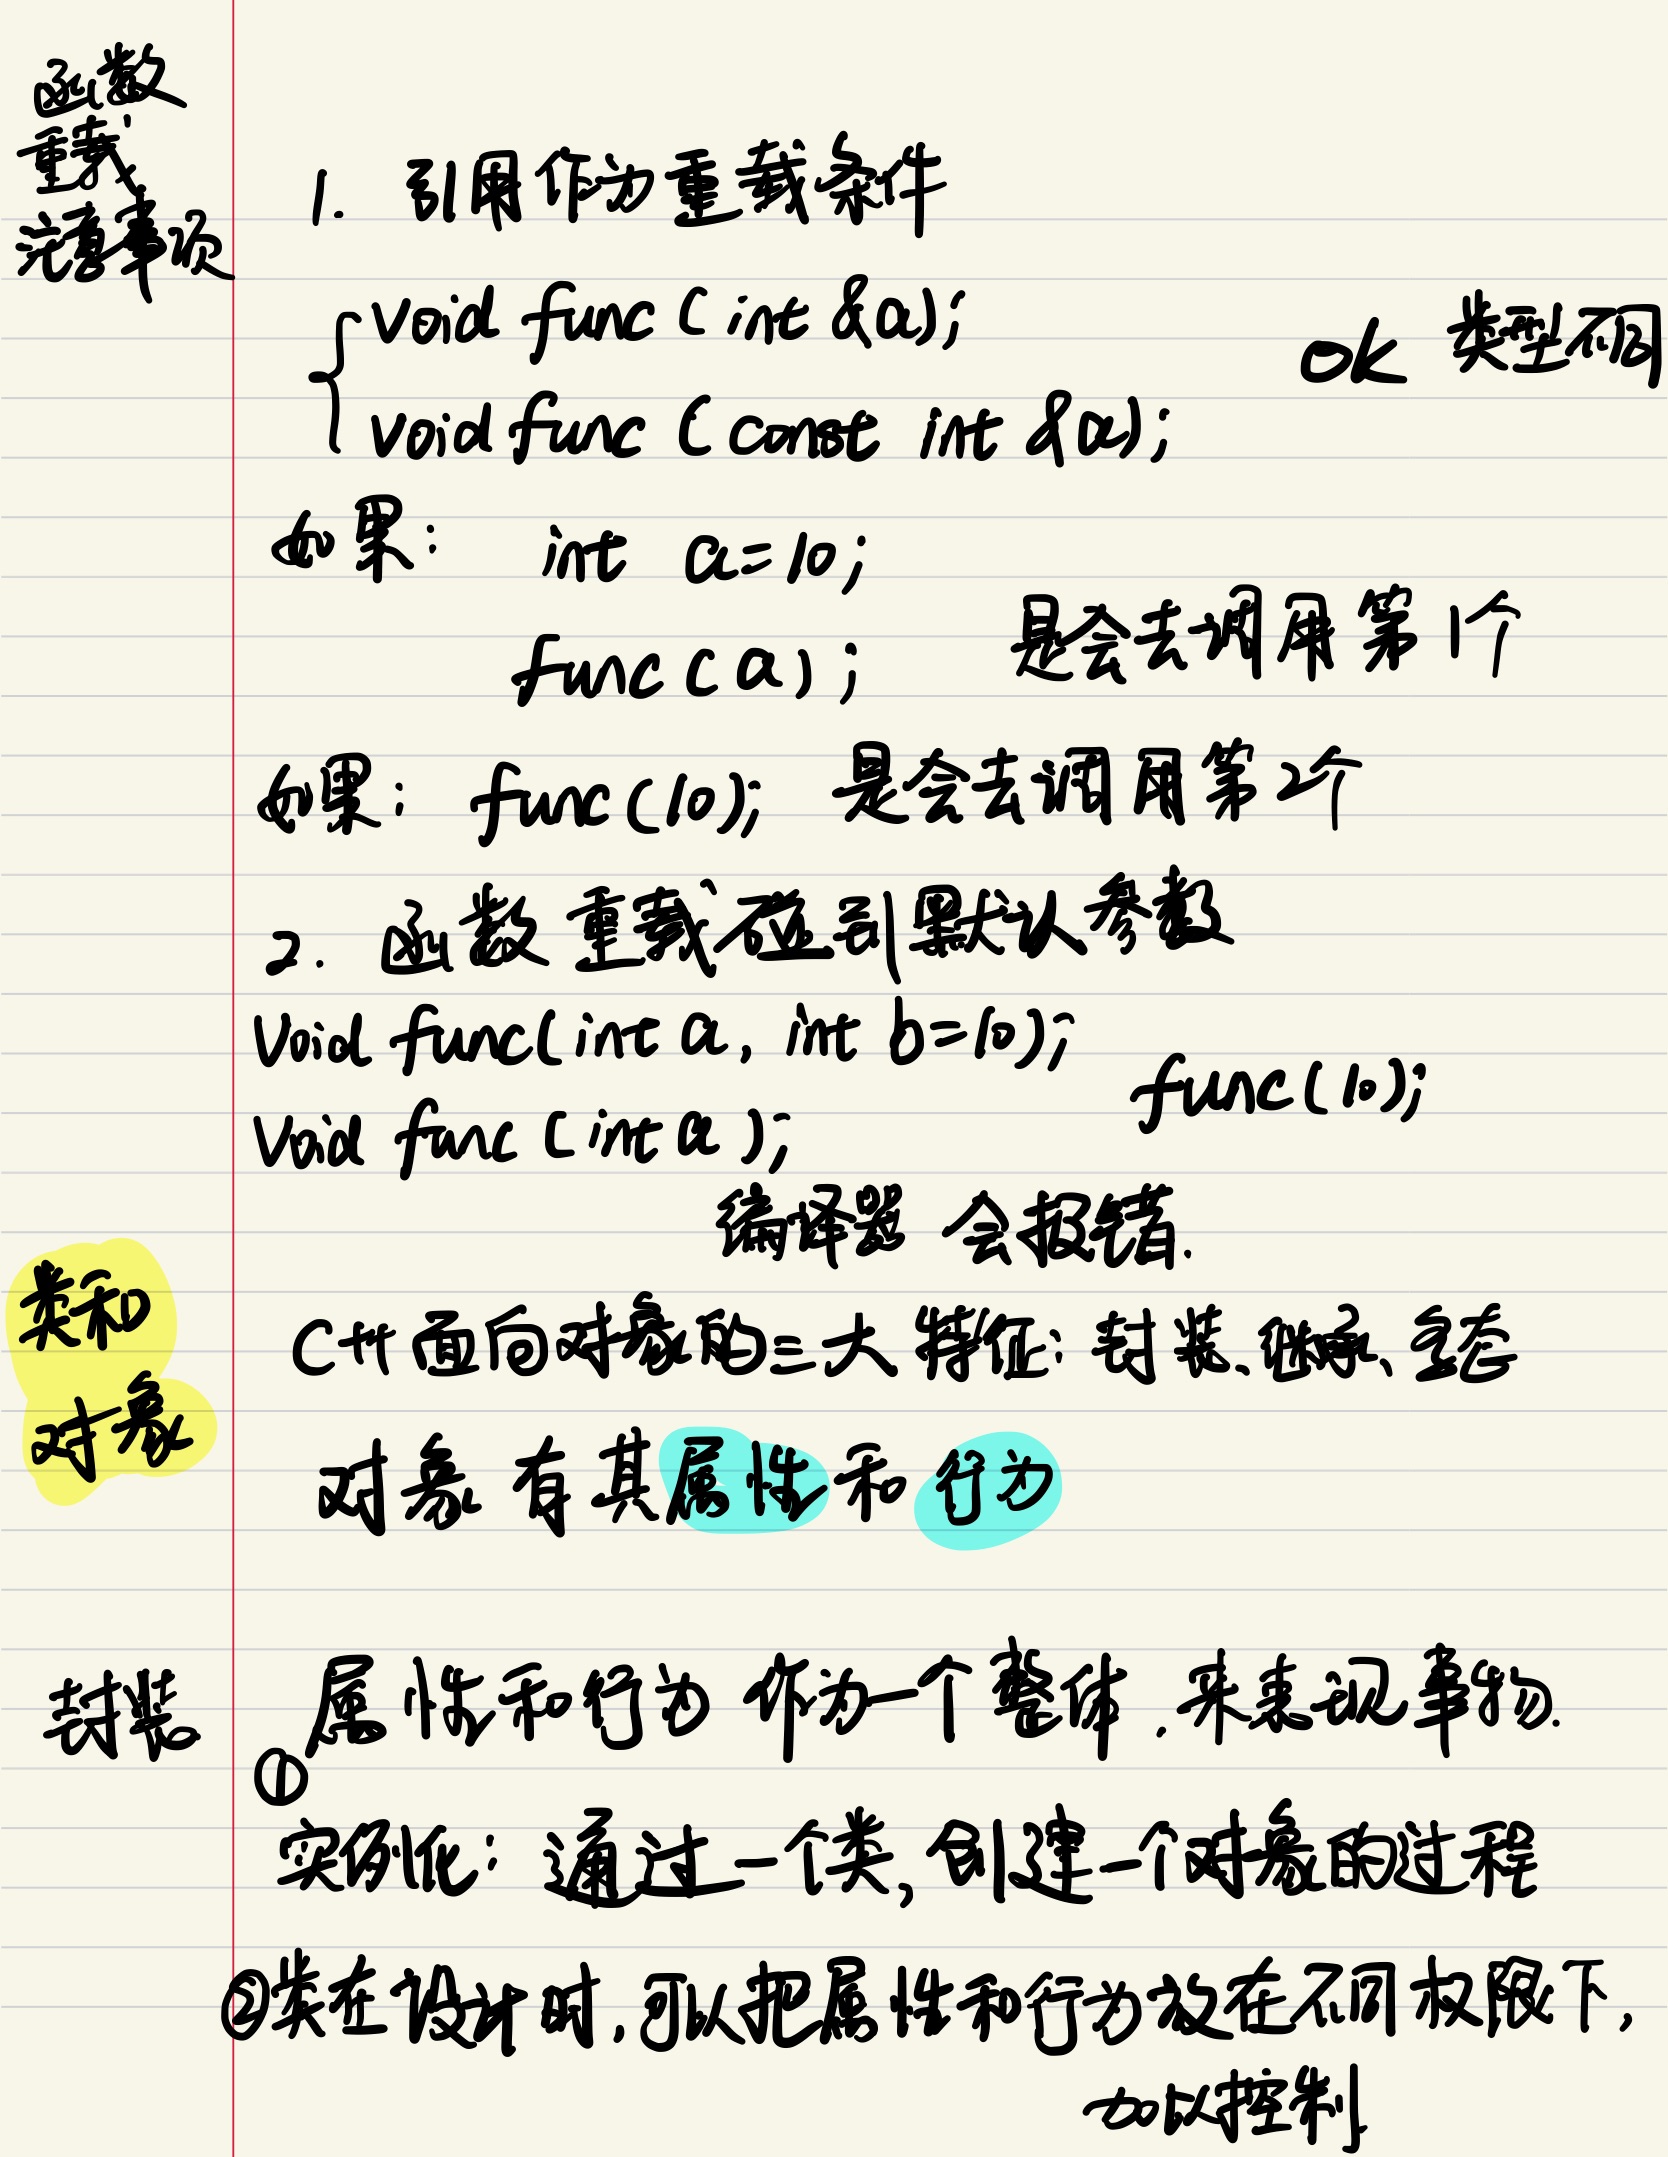 函数
重载
注意事项
1. 引用作为重载条件
void func(int &a);
ok 类型不同
void func(const int &a);
如果: int a=10;
func(a);
是会去调用第1个
如果: func(10); 是会去调用第2个
2. 函数重载碰到默认参数
Void func(int a, int b=10);
func(10);
Void func(int a);
编译器 会报错.
类和
对象
C++面向对象的三大特征: 封装、继承、多态
对象有其属性和行为
封装
属性和行为作为一个整体,来表现事物.
①
实例化: 通过一个类,创建一个对象的过程
②类在设计时,可以把属性和行为放在不同权限下,
加以控制